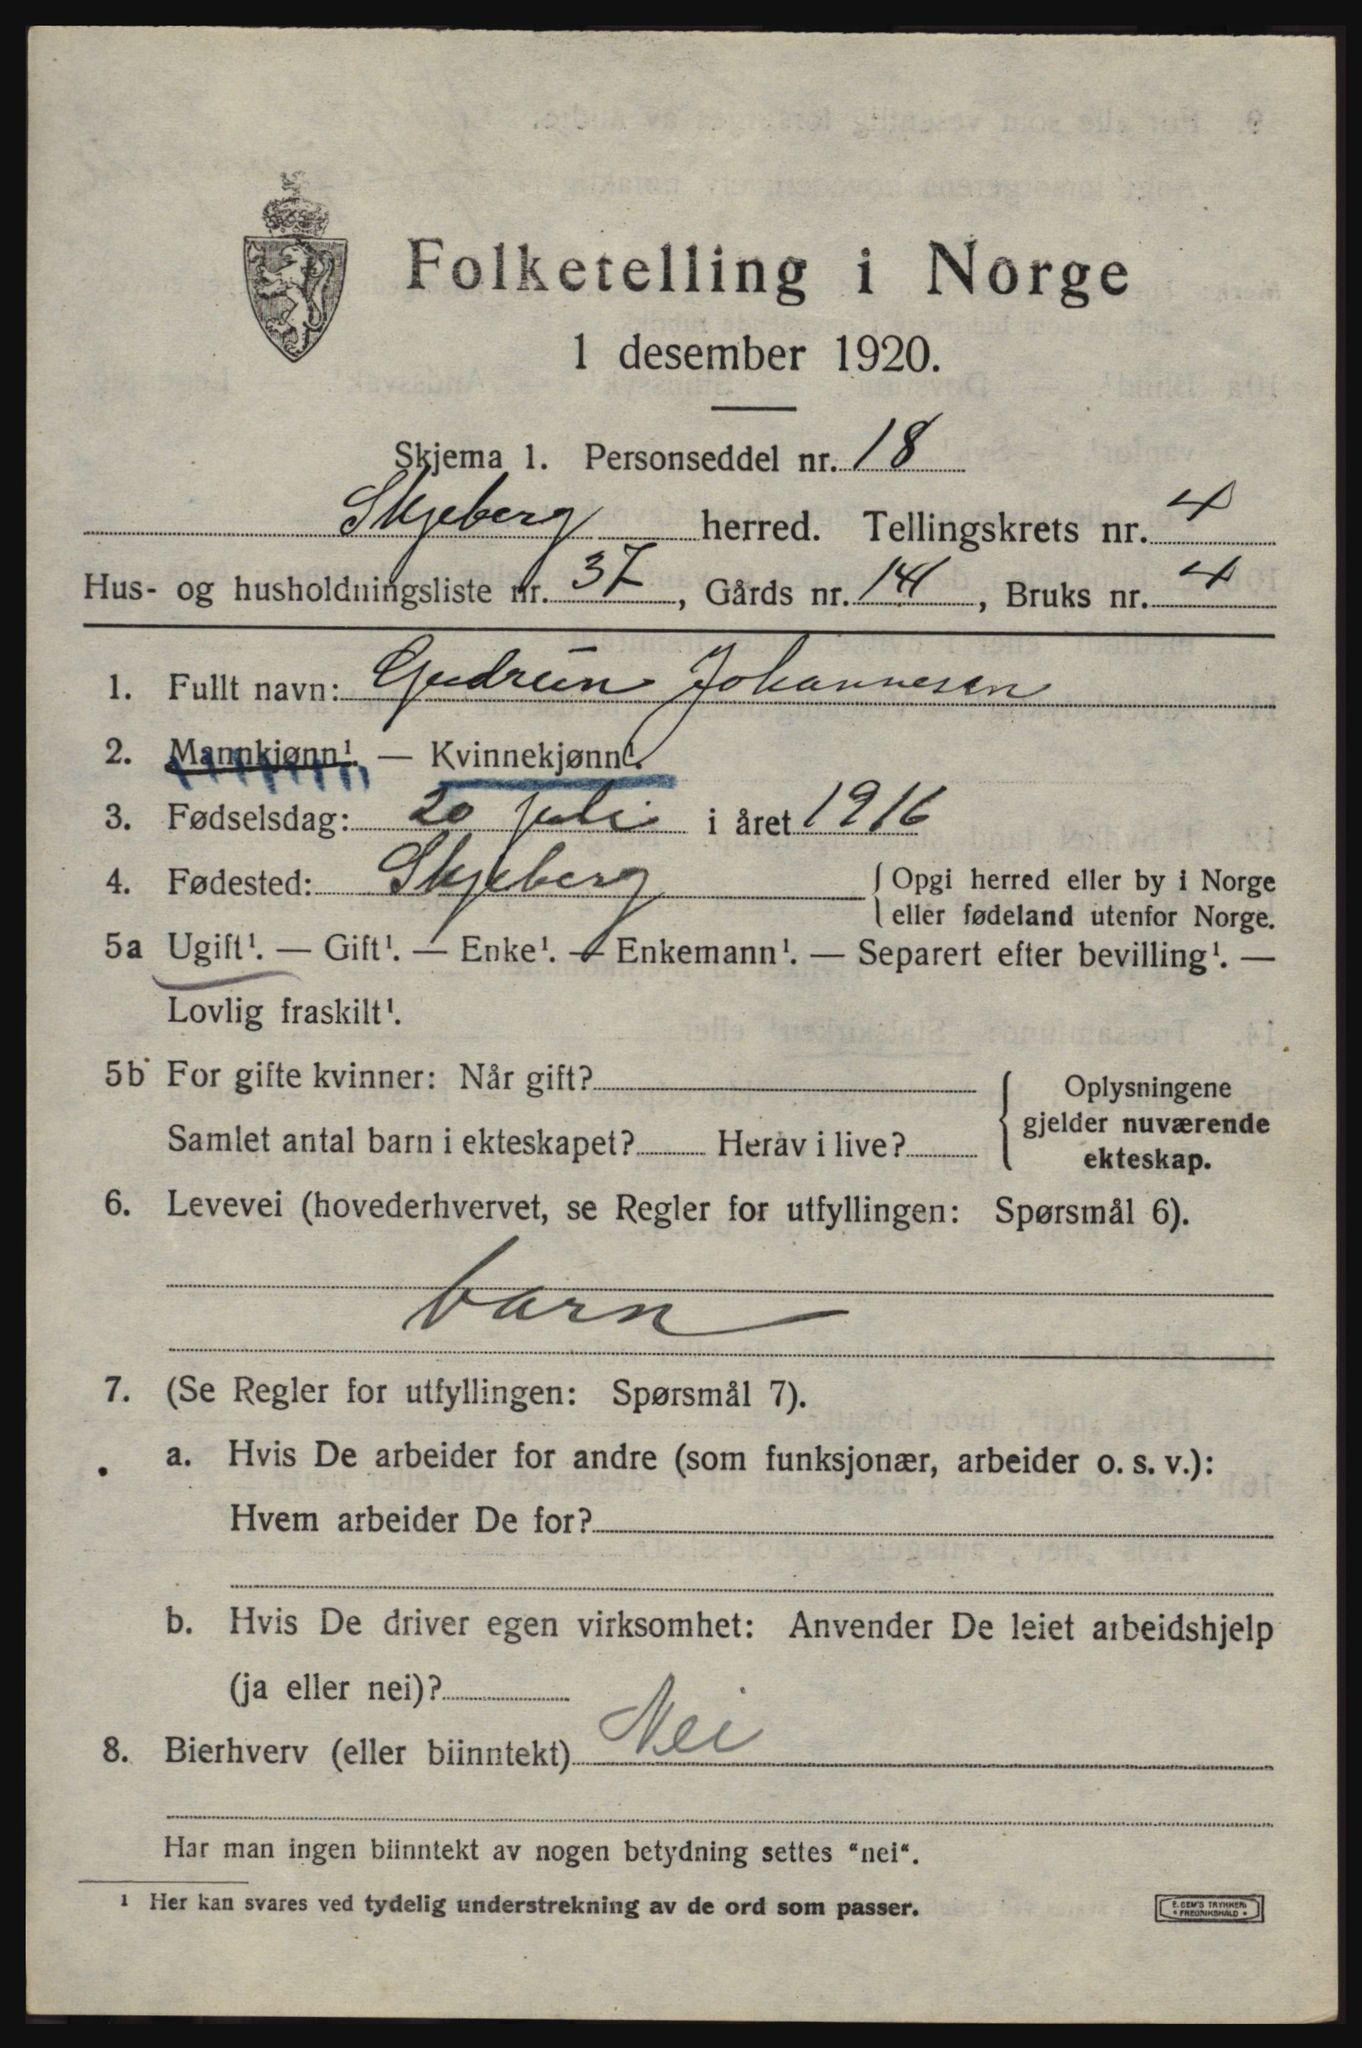 Folketelling i Norge
1 desember 1920.
Skjema 1. Personseddel nr. 18
Skjeberg herred. Tellingskrets nr. 4
Hus- og husholdningsliste nr. 37, Gårds nr. 141, Bruks nr. 4
1. Fullt navn: Gudrun Johannesen
2. Mannkjønn¹. — Kvinnekjønn¹.
3. Fødselsdag: 20 juli i året 1916
4. Fødested: Skjeberg { Opgi herred eller by i Norge
eller fødeland utenfor Norge.
5a Ugift¹. — Gift¹. — Enke¹. — Enkemann¹. — Separert efter bevilling¹. —
Lovlig fraskilt¹.
5b For gifte kvinner: Når gift? { Oplysningene
gjelder nuværende
Samlet antal barn i ekteskapet? Herav i live? ekteskap.
6. Levevei (hovederhvervet, se Regler for utfyllingen: Spørsmål 6).
barn
7. (Se Regler for utfyllingen: Spørsmål 7).
a. Hvis De arbeider for andre (som funksjonær, arbeider o. s. v.):
Hvem arbeider De for?
b. Hvis De driver egen virksomhet: Anvender De leiet arbeidshjelp
(ja eller nei)?
8. Bierhverv (eller biinntekt) Nei
Har man ingen biinntekt av nogen betydning settes "nei".
¹ Her kan svares ved tydelig understrekning av de ord som passer.
E. SEM'S TRYKKERI
FREDRIKSHALD